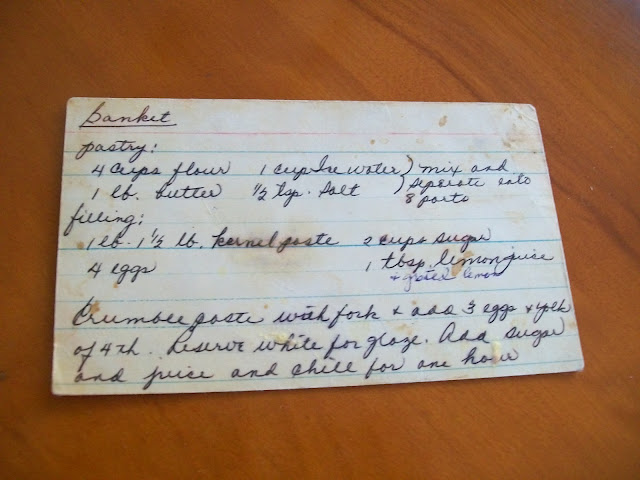 Banket
pastry:
4 cups flour 1 cup Ice water ) mix and
1 lb. butter 1/2 tsp. salt ) seperate into
8 parts
filling:
1 lb - 1 1/2 lb. kernel paste 2 cups sugar
4 eggs 1 tbsp. lemon juice
+ grated lemon
Crumble paste with fork + add 3 eggs + yolk
of 4th. Reserve white for glaze. Add sugar
and juice and chill for one hour